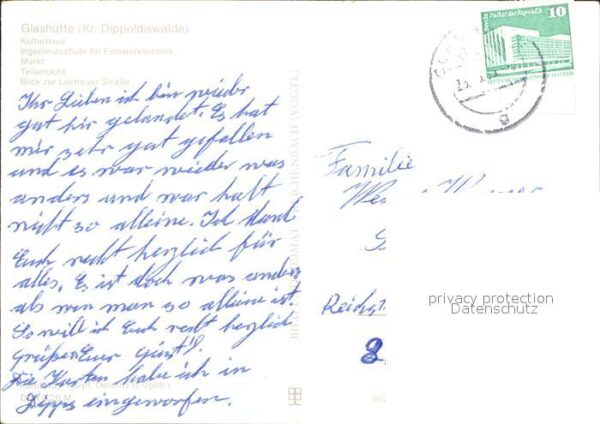 Glashütte (Kr. Dippoldiswalde)
Kulturhaus
Ingenieurschule für Feinwerktechnik
Markt
Teilansicht
Blick zur Luchauer Straße
Ihr Lieben ich bin wieder
gut hir gelandet. Es hat
mir sehr gut gefallen
und es war wieder was
anders und war halt
nicht so alleine. Ich dank
Euch recht herzlich für
alles. Es ist doch was anders
als wen man so alleine ist.
So will ich Euch recht herzlich
grüßen Euer
Die Karten habe ich in
Dipps eingeworfen.
Berlin, Palast der Republik
10
Familie
Reichst
8
privacy protection
Datenschutz